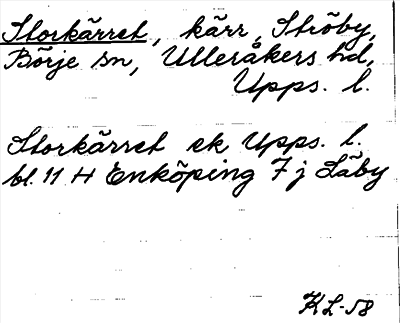 Storkärret, kärr, Ströby,
Börje sn, Ulleråkers hd,
Upps. l.
Storkärret ek Upps. l.
bl. 11 H Enköping 7 j Läby
KL-58